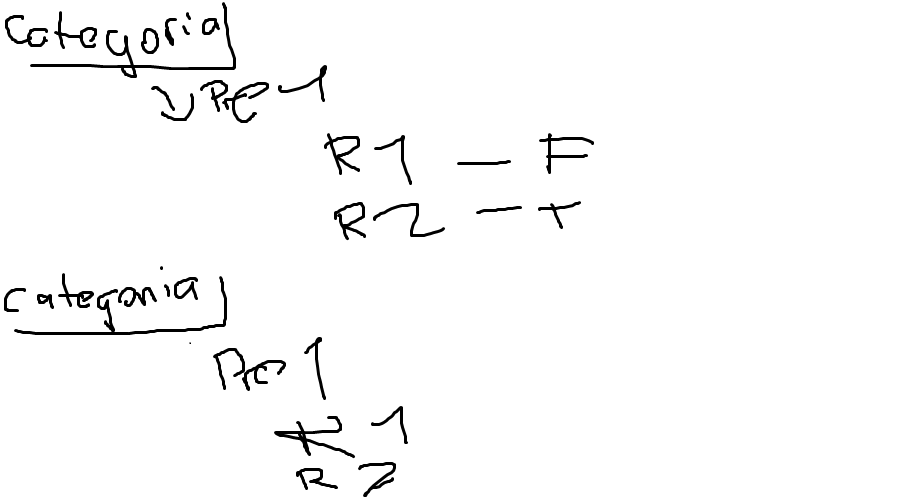 Categoria
Pre 1
R1 — F
R2 — T
categoria
Pre 1
R 1
R 2